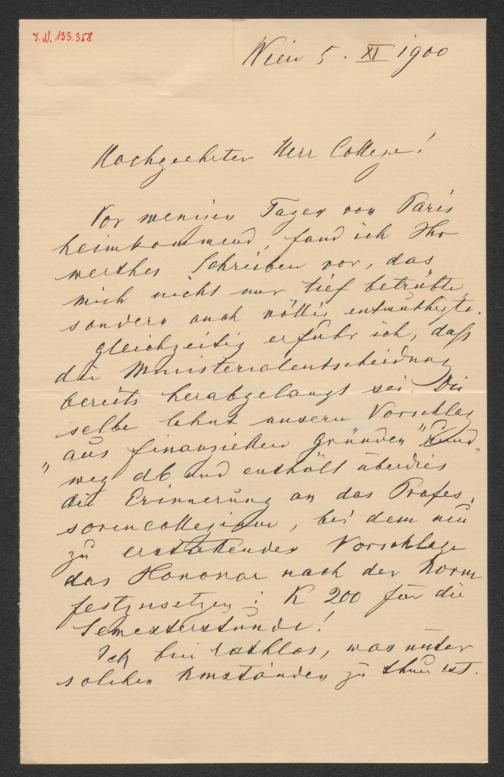 I.N. 133.358
Wien 5. XI 1900
Hochgeehrter Herr College!
Vor wenigen Tagen von Paris
heimkommend, fand ich Ihr
werthes Schreiben vor, das
mich nicht nur tief betrübte
sondern auch völlig entmuthigte.
Gleichzeitig erfuhr ich, daß
die Ministerialentscheidung
bereits herabgelangt sei. Die
selbe lehnt unsern Vorschlag
aus finanziellen Gründen "rund
weg" ab und enthält überdies
die Erinnerung an das Profes-
sorencollegium, bei dem neu
zu erstattenden Vorschlage
das Honorar nach der Norm
festzusetzen: K 200 für die
Semesterstunde!
Ich bin rathlos, was unter
solchen Umständen zu thun ist.